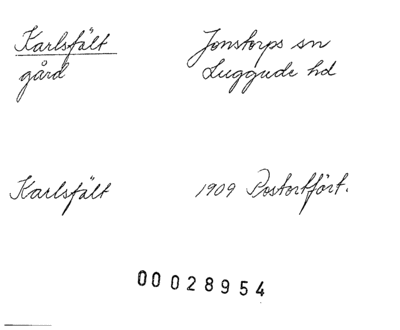 Karlsfält Jonstorps sn
gård Luggude hd
Karlsfält 1909 Postortfört.
00028954